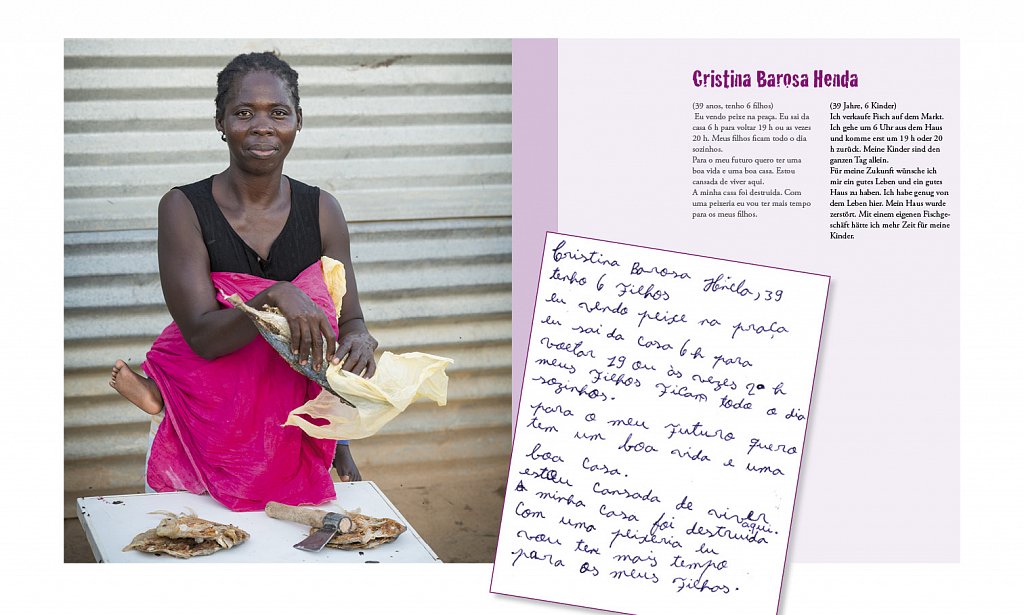 Cristina Barosa Henda
(39 anos, tenho 6 filhos)
Eu vendo peixe na praça. Eu sai da
casa 6 h para voltar 19 h ou as vezes
20 h. Meus filhos ficam todo o dia
sozinhos.
Para o meu futuro quero ter uma
boa vida e uma boa casa. Estou
cansada de viver aqui.
A minha casa foi destruída. Com
uma peixeria eu vou ter mais tempo
para os meus filhos.
(39 Jahre, 6 Kinder)
Ich verkaufe Fisch auf dem Markt.
Ich gehe um 6 Uhr aus dem Haus
und komme erst um 19 h oder 20
h zurück. Meine Kinder sind den
ganzen Tag allein.
Für meine Zukunft wünsche ich
mir ein gutes Leben und ein gutes
Haus zu haben. Ich habe genug von
dem Leben hier. Mein Haus wurde
zerstört. Mit einem eigenen Fischge-
schäft hätte ich mehr Zeit für meine
Kinder.
Cristina Barosa Henda, 39
tenho 6 filhos
eu vendo peixe na praça
eu sai da casa 6 h para
voltar 19 ou às vezes 20 h
meus filhos ficam todo o dia
sozinhos.
para o meu futuro quero
tem um boa vida e uma
boa casa.
estou cansada de viver
aqui.
A minha casa foi destruída
com uma peixeria eu
vou tem mais tempo
para os meus filhos.